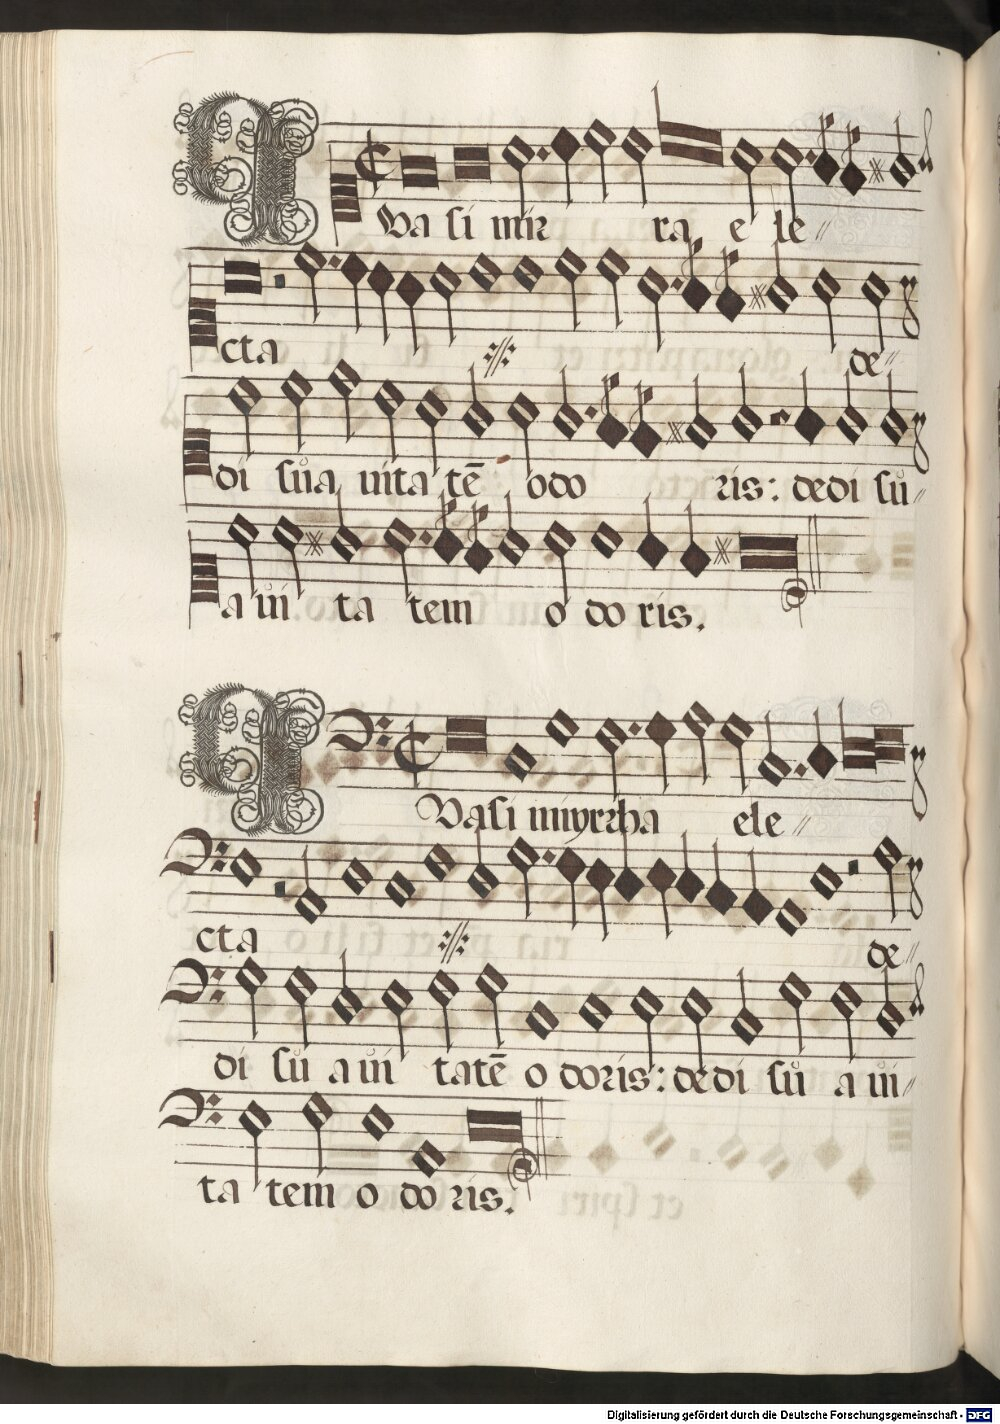 Qua si mir ra e le〃
cta ※ de〃
di sůa uita tē odo ris: dedi sů〃
a ůi ta tem o do ris.
Quasi miyrrha ele〃
cta ※ de〃
di sů a ůi tatē o doris: dedi sů a ůi〃
ta tem o do ris.
Digitalisierung gefördert durch die Deutsche Forschungsgemeinschaft - DFG